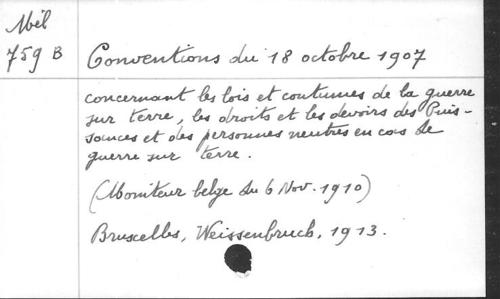 Mél
759 B
Conventions du 18 octobre 1907
concernant les lois et coutumes de la guerre
sur terre, les droits et les devoirs des Puis-
sances et des personnes neutres en cas de
guerre sur terre.
(Moniteur belge du 6 Nov. 1910)
Bruxelles, Weissenbruch, 1913.